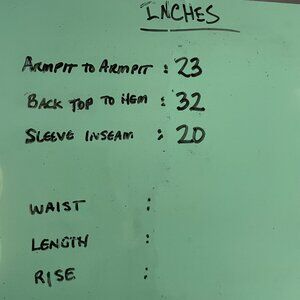 INCHES
ARMPIT TO ARMPIT : 23
BACK TOP TO HEM : 32
SLEEVE INSEAM : 20
WAIST :
LENGTH :
RISE :